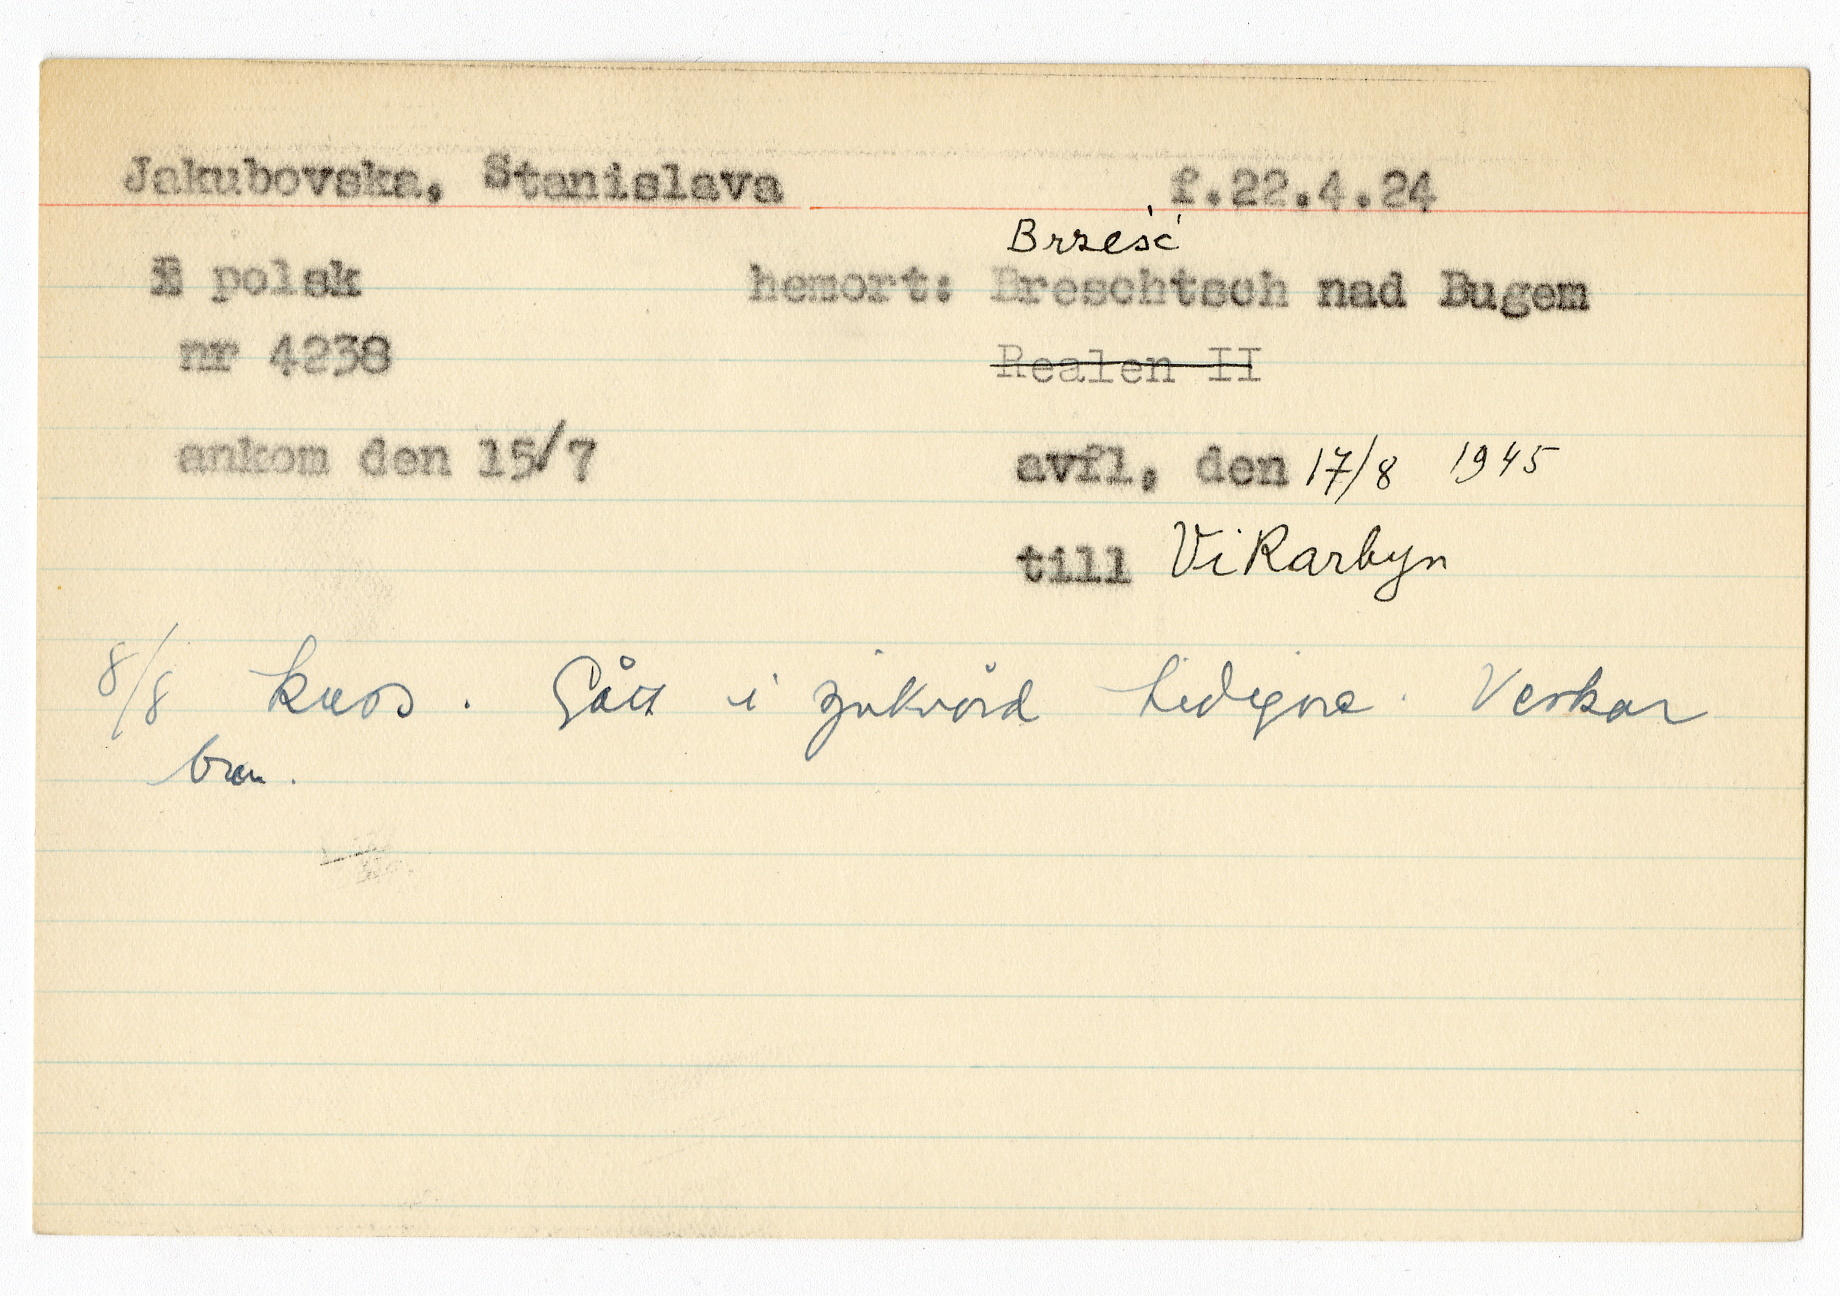 Jakubovska, Stanislava f.22.4.24
Brześć
polsk hemort: Breschtsch nad Bugem
nr 4238 Realen II
ankom den 15/7 avfl, den 17/8 1945
till Vikarbyn
8/8 kurs. Gått i sjukvård tidigare. Verkar
bra.